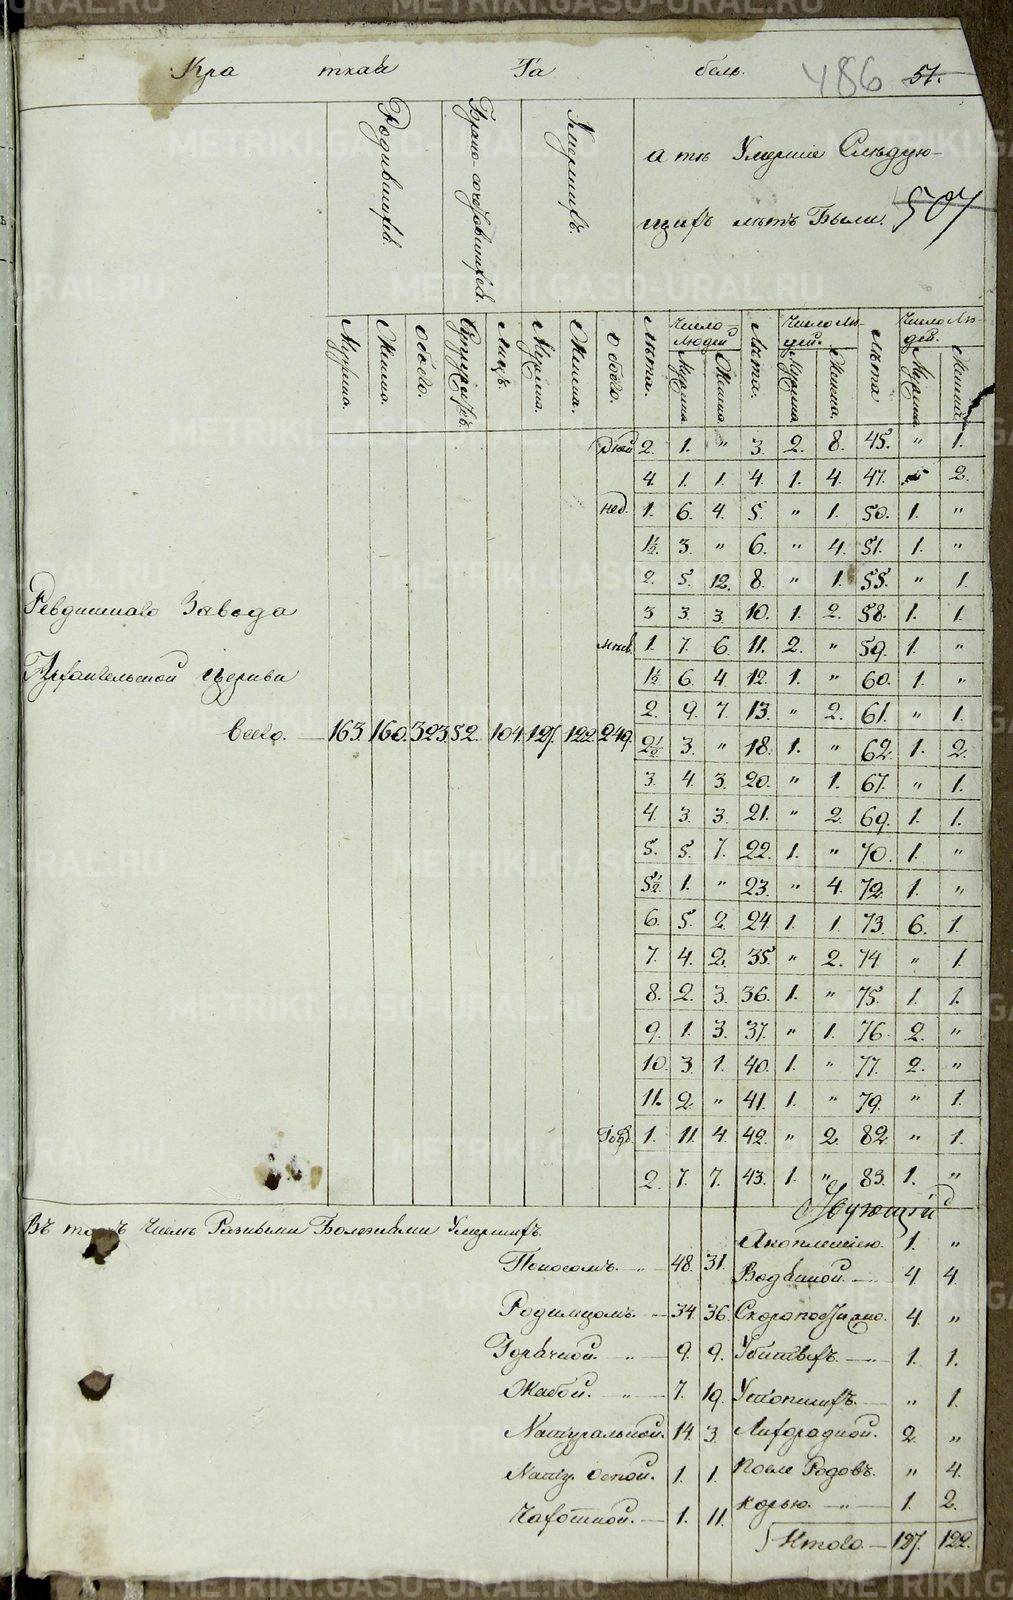 Кра ткая Та бель. 486 51.
Родившихся.
Брако-сочетовшихся.
Умершихъ.
а тѣ Умершіе Слѣдую-
щихъ лѣтъ Были. 507
Мужеска. Женска. Обоего. Супружествъ. Лицъ. Мужска. Женска. Обоего.
Лѣта. Число людей Мужска Женска. Лѣта. Число Лю-дей. Мужска Женска. Лѣта Число Лю-дей. Мужска Женска.
дней 2. 1. " 3. 2. 8. 45. " 1.
4. 1. 1. 4. 1. 4. 47. " 2.
нед. 1. 6. 4. 5. " 1. 50. 1. "
1½ 3. " 6. " 4. 51. 1. "
2. 5. 12. 8. " 1. 55. " 1.
3 3. 3. 10. 1. 2. 58. 1. 1.
мѣсяц. 1. 7. 6. 11. 2. " 59. 1. "
1½ 6. 4. 12. 1. " 60. 1. "
2. 9. 7. 13. " 2. 61. " 1.
2½ 3. " 18. 1. " 62. 1. 2.
3. 4. 3. 20. " 1. 67. " 1.
4. 3. 3. 21. " 2. 69. 1. 1.
5. 5. 7. 22. 1. " 70. 1. "
5½ 1. " 23. " 4. 72. 1. "
6. 5. 2. 24. 1. 1. 73. 6. 1.
7. 4. 2. 35. " 2. 74 " 1.
8. 2. 3. 36. 1. " 75. 1. 1.
9. 1. 3. 37. " 1. 76. 2. "
10. 3. 1. 40. 1. " 77. 2. "
11. 2. " 41. 1. " 79. " 1.
Годъ. 1. 11. 4. 42. " 2. 82. " 1.
2. 7. 7. 43. 1. " 83. 1. "
Ревдинскаго Завода
Архангельской Церкви
всего. 163. 160. 323. 52. 104. 127. 122. 249.
Въ томъ числѣ Разными Болезнями Умершихъ.
Поносомъ. 48. 31.
Родимцомъ. 34. 36.
Горячкой. 9. 9.
Жабой. 7. 19.
Натуральной. 14. 3.
Натур. оспой. 1. 1.
Чахоткой. 1. 11.
Апоплексіею. 1. "
Водяной. 4 4.
Скоропостижно. 4. "
Убитыхъ. 1. 1.
Утопшихъ. " 1.
Лихорадкой. 2. "
После Родовъ. " 4.
Корью. 1. 2.
Итого. 127. 122.
METRIKI.GASO-URAL.RU